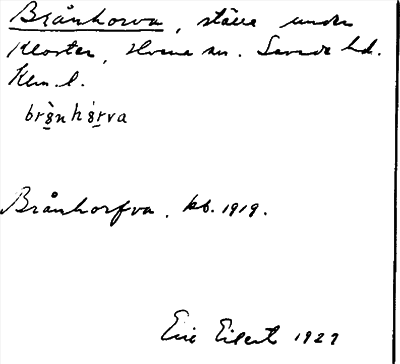 Brånhorva, ställe under
Kloster, Hvena sn. Sevede hd.
Klm. l.
brånhårva
Brånhorfva, kb. 1919.
Eric Eilert 1927